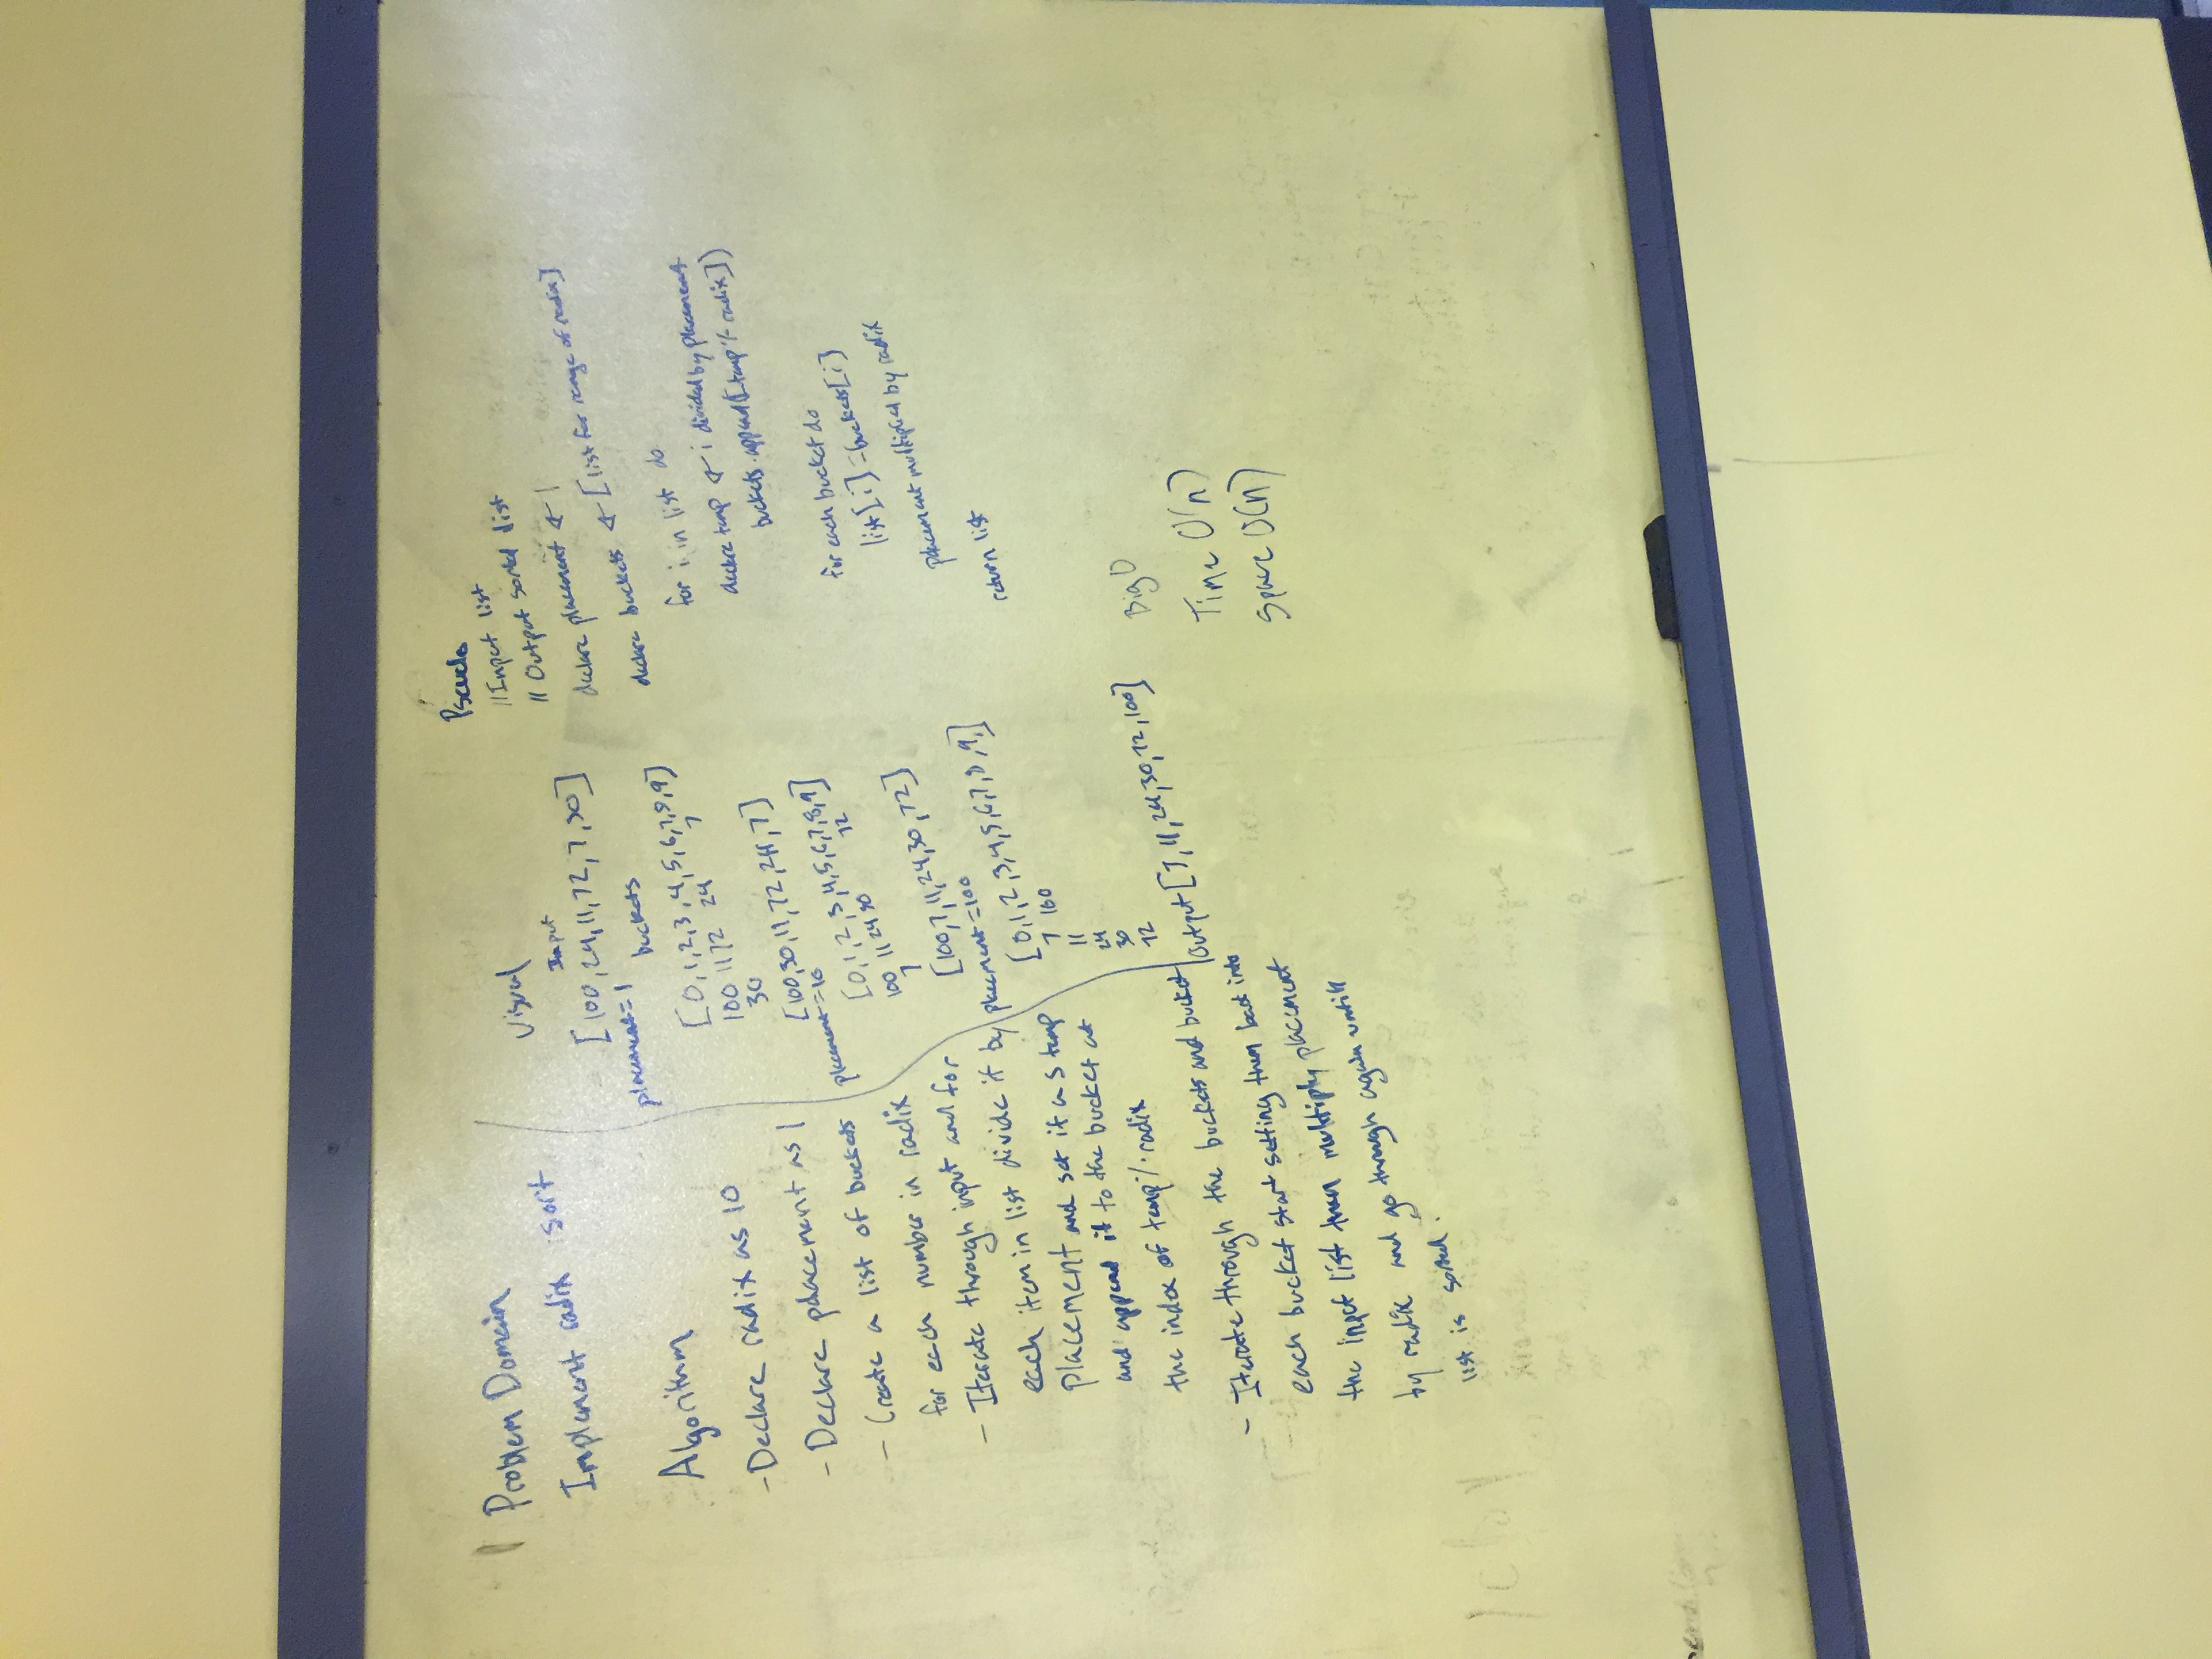 Problem Domain
Implement radix sort
Algorithm
- Declare radix as 10
- Declare placement as 1
- Create a list of buckets
for each number in radix
- Iterate through input and for
each item in list divide it by
placement and set it as temp
and append it to the bucket at
the index of temp % radix
- Iterate through the buckets and bucket
each bucket start setting them back into
the input list then multiply placement
by radix and go through again untill
list is sorted.
Visual
Input
[100,24,11,72,7,30]
placement=1
buckets
[0,1,2,3,4,5,6,7,8,9]
100 11 72 24 7
30
[100,30,11,72,24,7]
placement=10
[0,1,2,3,4,5,6,7,8,9]
100 11 24 30 72
7
[100,7,11,24,30,72]
placement=100
[0,1,2,3,4,5,6,7,8,9,]
7 100
11
24
30
72
Output [7,11,24,30,72,100]
Pseudo
//Input list
// Output sorted list
declare placement ← 1
declare buckets ← [list for range of radix]
for i in list do
declare temp ← i divided by placement
buckets.append([temp % radix])
for each bucket do
list[i] = buckets[i]
placement multiplied by radix
return list
Big O
Time O(n)
Space O(n)